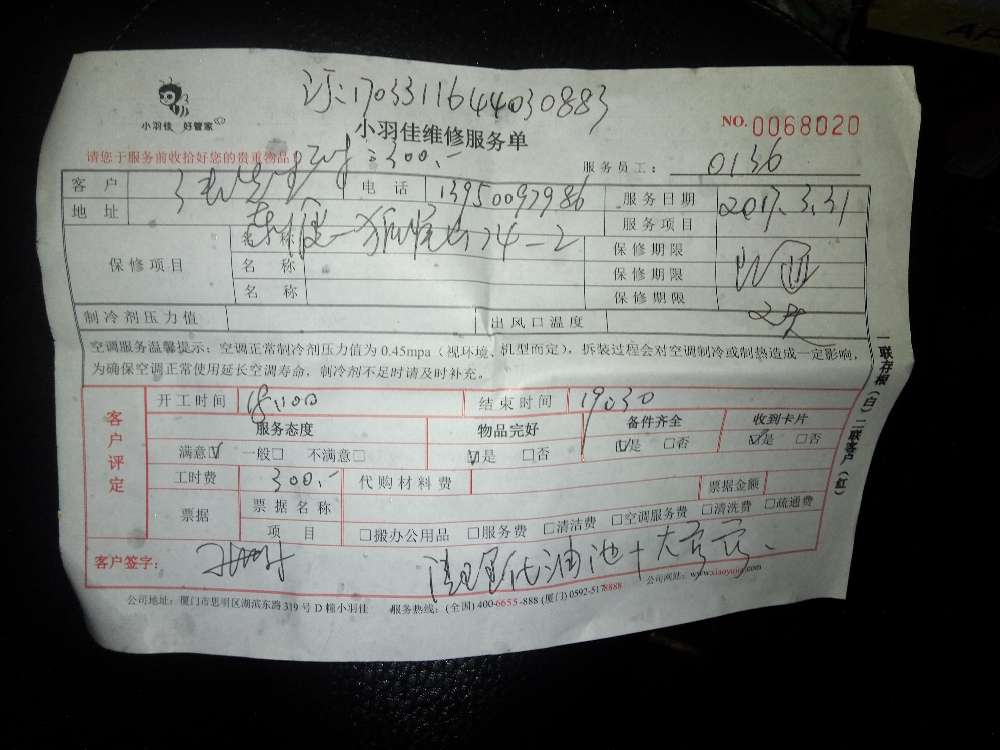 订:1703311644030883
小羽佳 好管家
小羽佳维修服务单
NO.0068020
请您于服务前收拾好您的贵重物品
300.-
服务员工: 0136
客户 电话 13950097986 服务日期 2017.3.31
地址 服务项目
保修项目 名称 保修期限
名称 保修期限
名称 保修期限
制冷剂压力值 出风口温度
空调服务温馨提示:空调正常制冷剂压力值为 0.45mpa(视环境、机型而定),拆装过程会对空调制冷或制热造成一定影响,
为确保空调正常使用延长空调寿命,制冷剂不足时请及时补充。
一联存根(白)二联客户(红)
客户评定
开工时间 结束时间 19030
服务态度 物品完好 备件齐全 收到卡片
满意☑ 一般□ 不满意□ ☑是 □否 ☑是 □否 ☑是 □否
工时费 300.- 代购材料费
票据 票据名称 票据金额
项目 □搬办公用品 □服务费 □清洁费 □空调服务费 □清洗费 □疏通费
客户签字:
油池+大
公司地址:厦门市思明区湖滨东路 319 号 D 幢小羽佳 服务热线:(全国) 400-6655-888 (厦门) 0592-5178888 公司网址:www.xiaoyujia.com